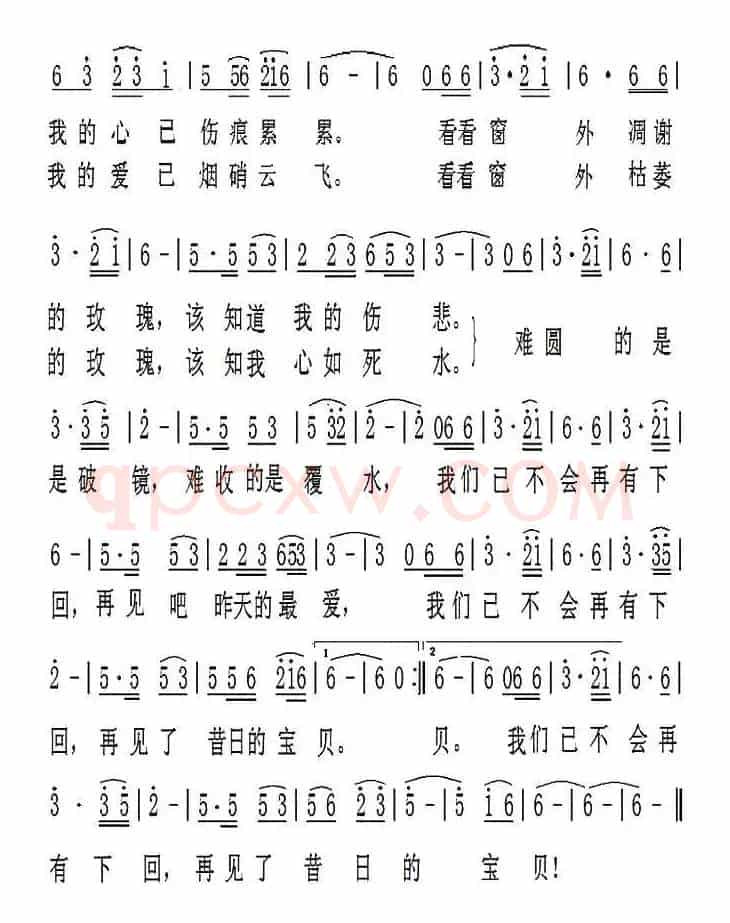 6 3 2 3 i | 5 56 2i6 | 6 - | 6 066 | 3 · 2 i | 6 · 6 6 |
我的心已伤痕累累。 看看窗 外凋谢
我的爱已烟硝云飞。 看看窗 外枯萎
3 · 2 i | 6 - | 5 · 5 5 3 | 2 2 3 6 5 3 | 3 - | 3 0 6 | 3 · 2i | 6 · 6 |
的玫瑰，该知道我的伤悲。 难圆 的是
的玫瑰，该知我心如死水。
3 · 3 5 | 2 - | 5 · 5 5 3 | 5 32 | 2 - | 2 066 | 3 · 2i | 6 · 6 | 3 · 2i |
是破镜，难收的是覆水，我们已不会再有下
qpcxw.COM
6 - | 5 · 5 5 3 | 2 2 3 653 | 3 - | 3 0 6 6 | 3 · 2i | 6 · 6 | 3 · 35 |
回，再见吧昨天的最爱，我们已不会再有下
1 2
2 - | 5 · 5 5 3 | 5 5 6 2i6 | 6 - | 6 0 :‖ 6 - | 6 066 | 3 · 2i | 6 · 6 |
回，再见了昔日的宝贝。 贝。我们已不会再
3 · 3 5 | 2 - | 5 · 5 5 3 | 5 6 2 3 | 5 - | 5 i 6 | 6 - | 6 - ‖
有下回，再见了昔日的宝贝！